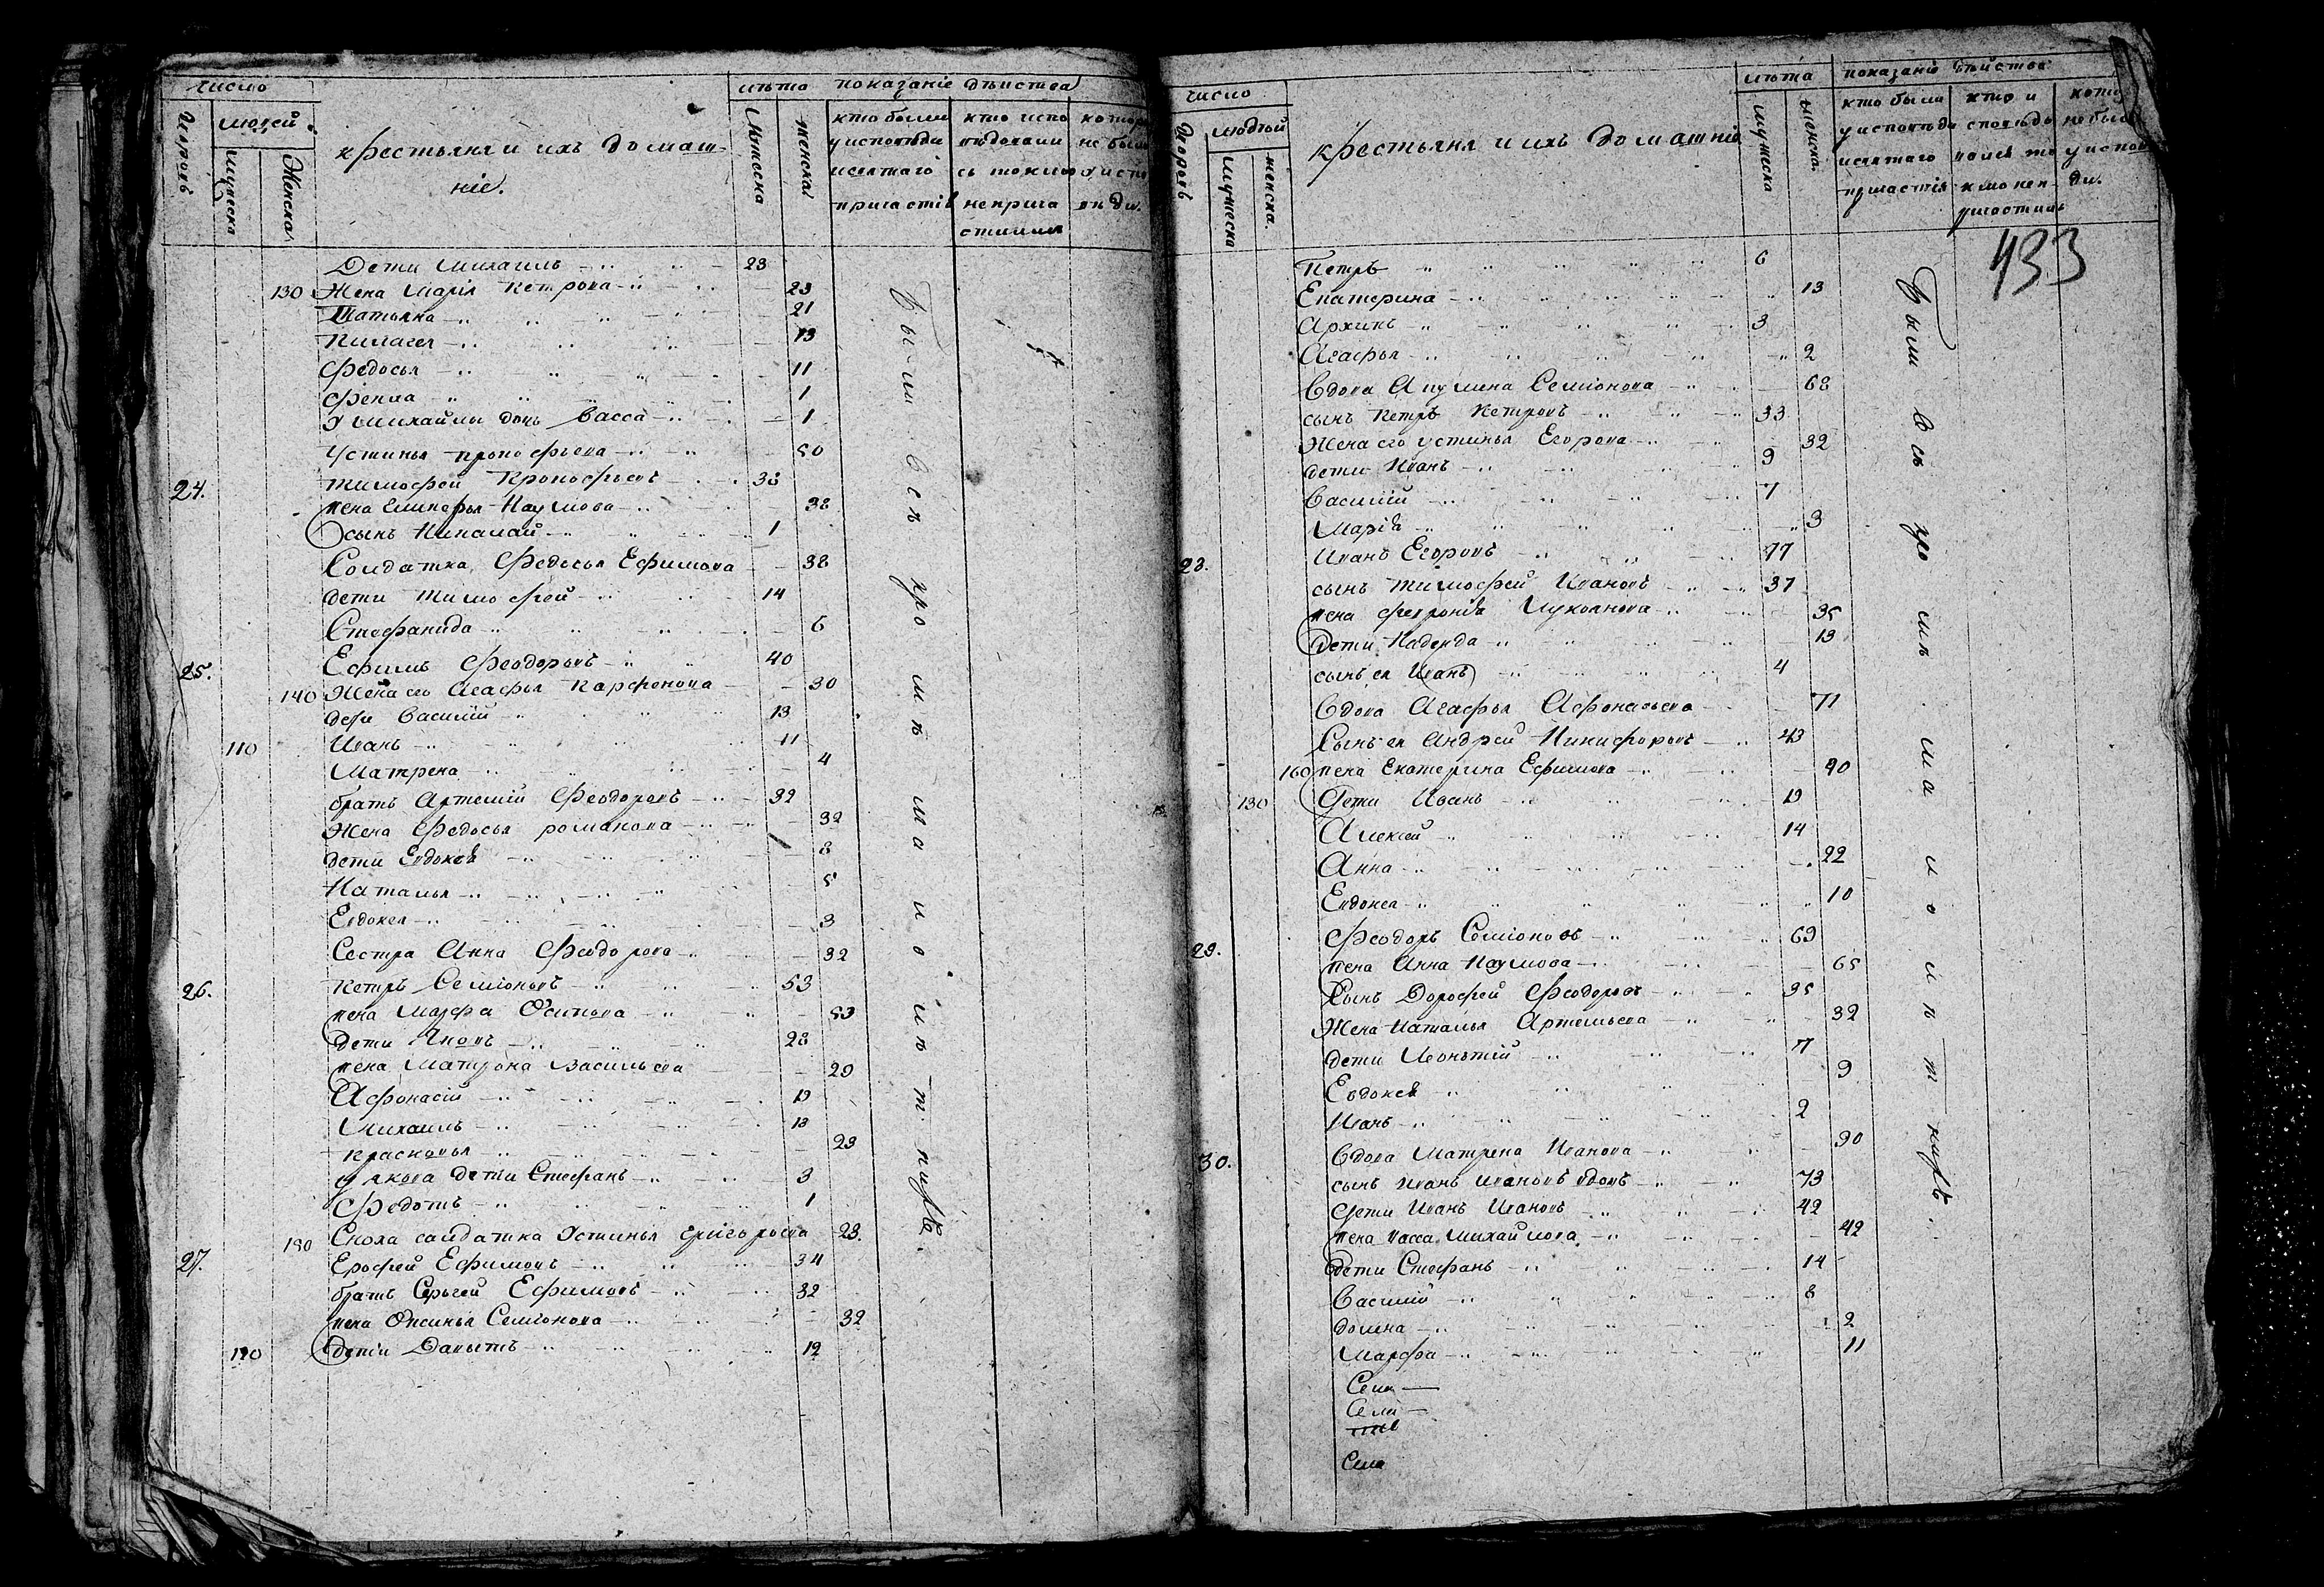 число
людей
Дворовъ
мужеска
Женска
крестьяня и ихъ домаш-
ніе.
лѣта
мужеска
женска
показаніе дѣиства
кто были у исповѣди и святаго причастія
кто испо вѣдовали съ токмо не прича стилися
Дети Михаилъ 23
130 Жена Марія Петрова 23
Татьяна 21
Пилагея 13
Федосья 11
Фекла 1
У Михайлы дочь Васса 1
Устинья Прокофьева 50
24. Тимофей Прокофьевъ 38
жена Гликерья Наумова 38
сынъ Николай 1
Солдатка Федосья Ефимова 38
дети Тимофей 14
Стефанида 6
25. Ефимъ Феодоровъ 40
140 Жена его Агафья Парфенова 30
дети Василий 13
110 Иванъ 11
Матрена 4
братъ Артемий Феодоровъ 32
Жена Федосья романова 32
дети Евдокея 8
Наталья 5
Евдокея 3
Сестра Анна Феодорова 32
26. Петръ Семіоновъ 53
жена Марфа Осипова 53
дети Яковъ 28
жена Матрона Васильева 29
Афонасій 19
Михаилъ 13
Прасковья 23
у якова дети Стефанъ 3
Федотъ 1
Сноха салдатка Устинья григорьева 28.
27. Ерофей Ефимовъ 34
братъ Сергей Ефимовъ 32
жена Оксинья Семіонова 32
120 дети Давытъ 12
Были всѣ кромѣ малолѣтнихъ.
число
людъй
Дворовъ
мужеска
женска.
крестьяня и ихъ домашніе
лѣта
мужеска
женска.
показаніе дѣиства
кто были у исповѣди и святаго причастія
433
Петръ 6
Екатерина 13
Архипъ 3
Агафья 2
Вдова Акулина Семіонова 68
сынъ Петръ Петровъ 33
Жена его устинья Егорова 32
дети Иванъ 9
Василий 7
Марія 3
28. Иванъ Егоровъ 77
сынъ Тимофей Ивановъ 37
жена Феврониа Лукоянова 35
дети Надежда 13
сынъ ея Иванъ 4
Вдова Агафья Афонасьева 71
Сынъ ея Андрей Никифоровъ 43
160 жена Екатерина Ефимова 40
130 Дети Иванъ 19
Алексей 14
Анна 22
Евдокея 10
29. Феодоръ Семіоновъ 69
жена Анна Наумова 65
Сынъ Дорофей Феодоровъ 35
Жена Наталья Артемьева 32
дети Леонътій 7
Евдокея 9
Иванъ 2
30. Вдова Матрена Иванова 90
сынъ Иванъ Ивановъ вдовъ 73
Дети Иванъ Ивановъ 42
жена Васса Михайлова 42
дети Стефанъ 14
Василий 8
домна 2
Марфа 11
Села
Села
Села
Были всѣ кромѣ малолѣтнихъ.